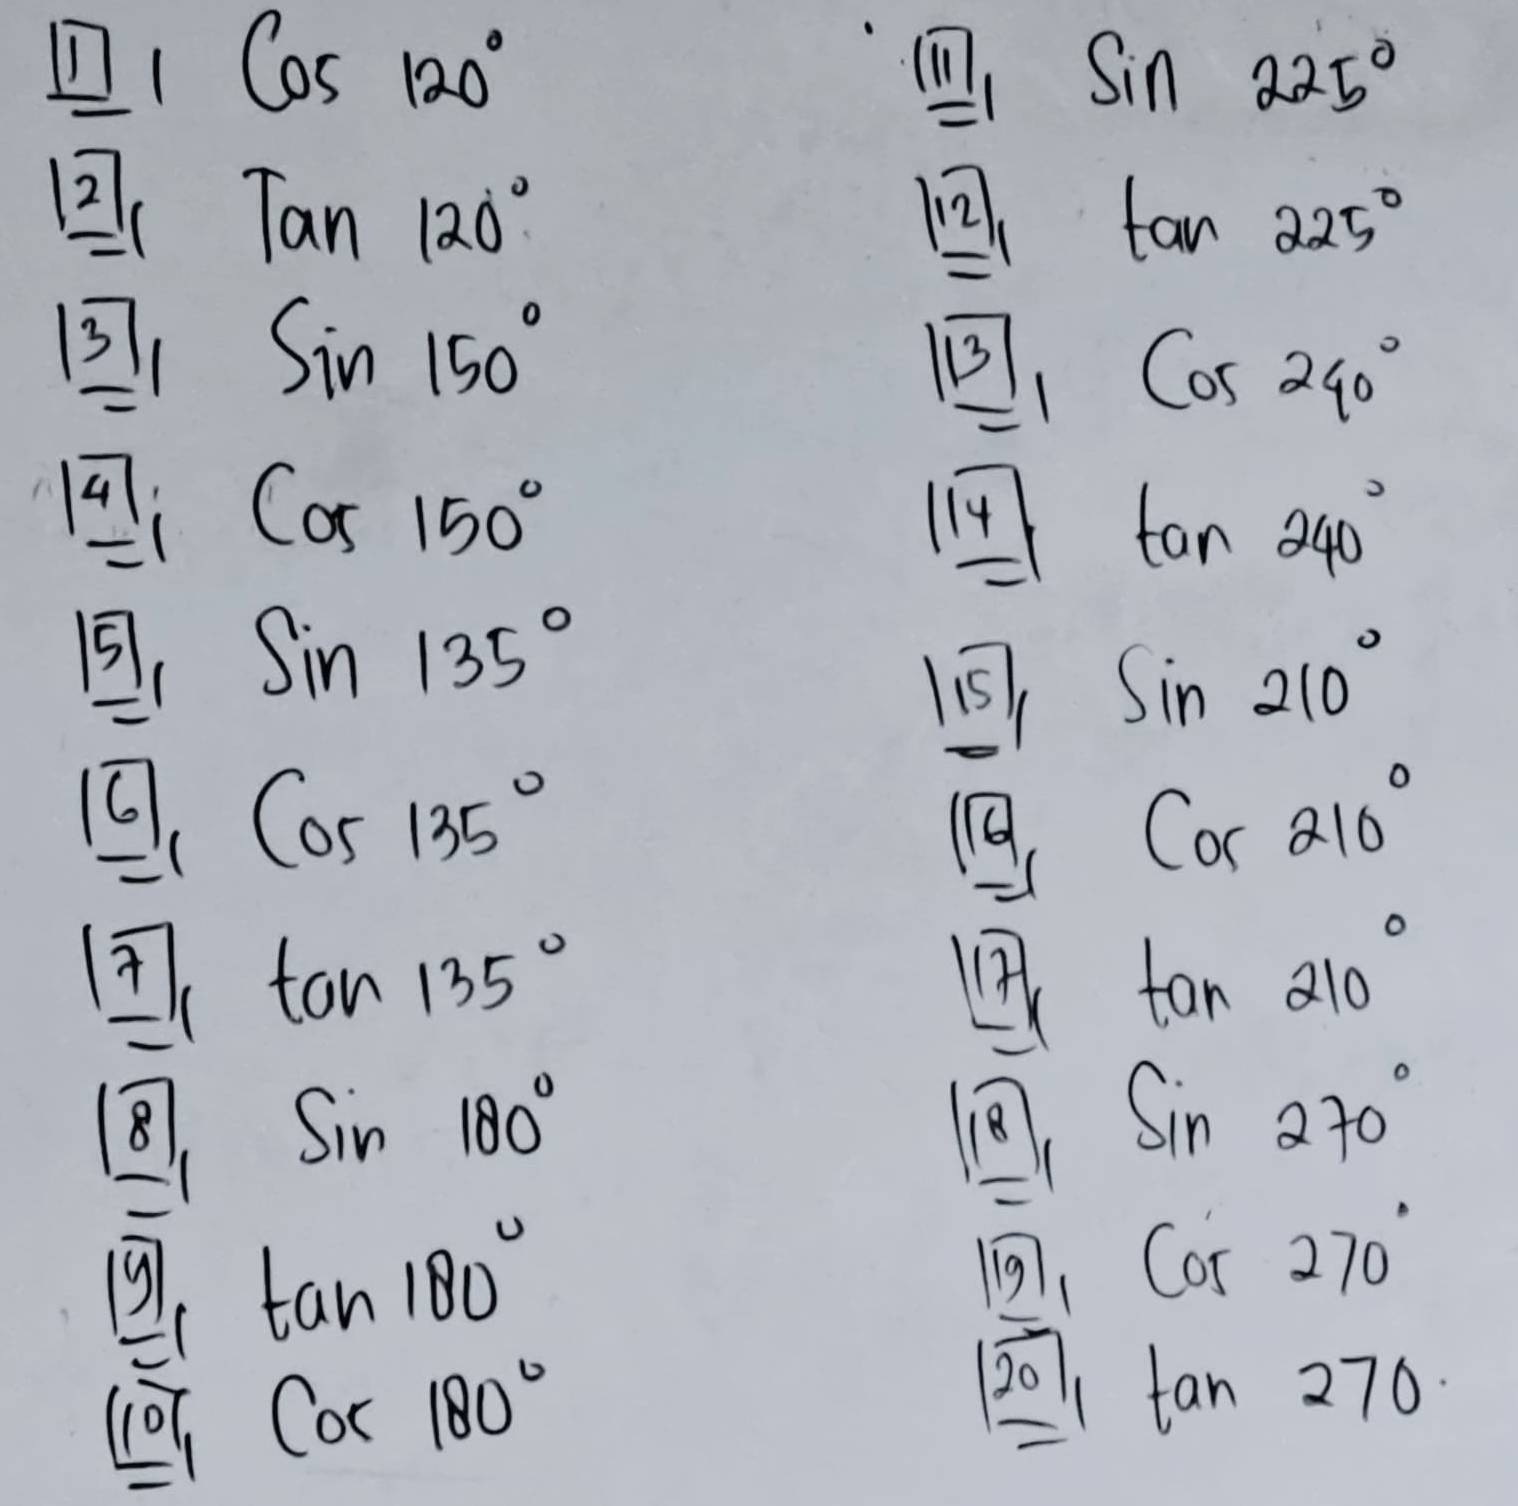 1, Cos 120°
2, Tan 120°
3, Sin 150°
4, Cos 150°
5, Sin 135°
6, Cos 135°
7, tan 135°
8, Sin 180°
9, tan 180°
10, Cos 180°
11, Sin 225°
12, tan 225°
13, Cos 240°
14, tan 240°
15, Sin 210°
16, Cos 210°
17, tan 210°
18, Sin 270°
19, Cos 270°
20, tan 270.